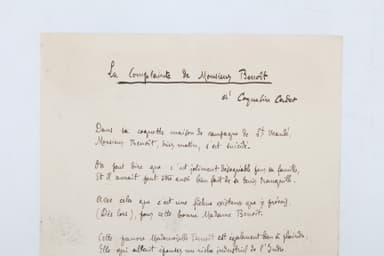 La Complainte de Monsieur Benoît
à Coquelin Cadet
Dans sa coquette maison de campagne de St Mandé,
Monsieur Benoît, hier matin, s'est suicidé.
On peut dire que c'est joliment désagréable pour sa famille,
Et il aurait peut être aussi bien fait de se tenir tranquille.
Avec cela que c'est une fichue existence que je prévois,
(Dès lors), pour cette bonne Madame Benoît.
Cette pauvre Mademoiselle Benoît est également bien à plaindre,
Elle qui allait épouser un riche industriel de l'Indre.